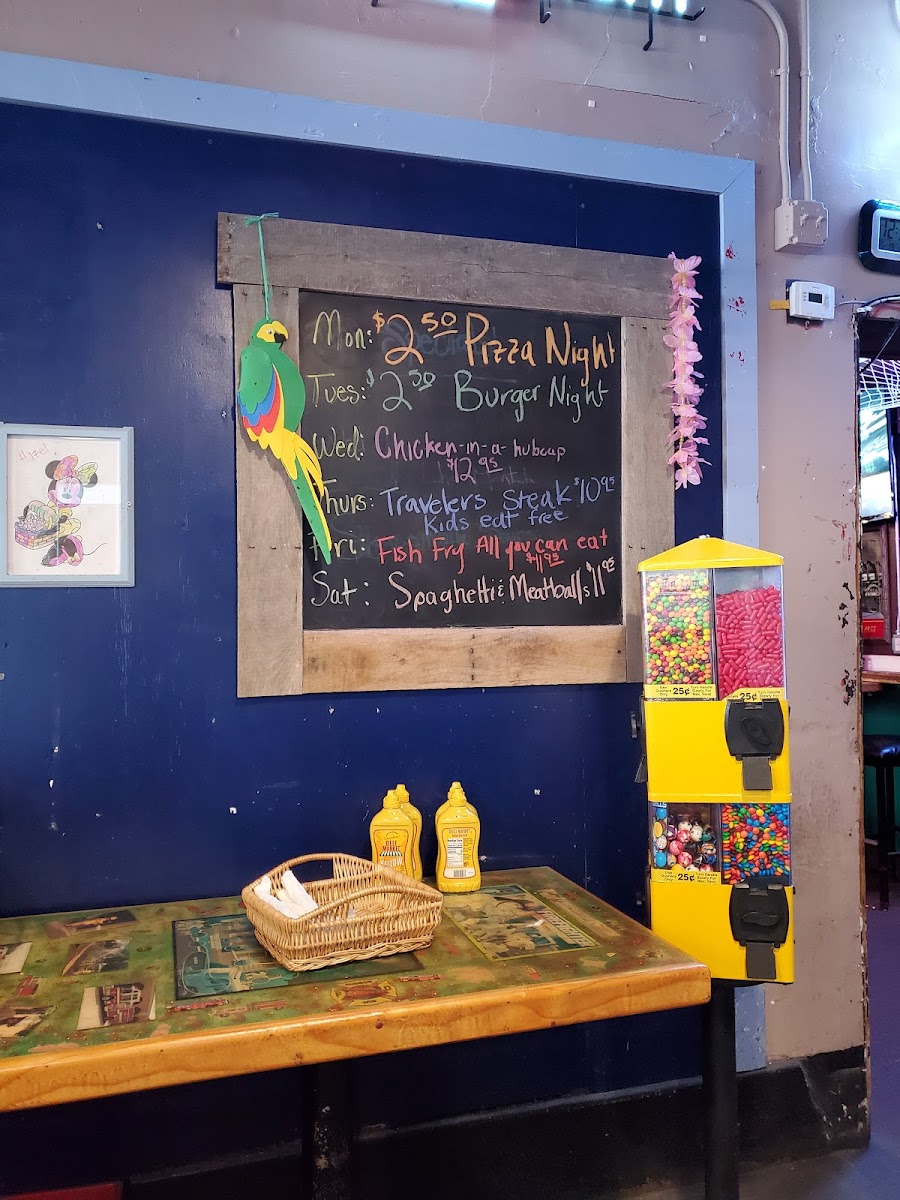 Mon: $2.50 Pizza Night
Tues: $2.50 Burger Night
Wed: Chicken-in-a-hubcap
$12.95
Thurs: Travelers Steak $10.95
Kids eat free
Fri: Fish Fry All you can eat
$11.95
Sat: Spaghetti & Meatballs $11.95
Hazel
25¢
25¢
25¢
YELLOW